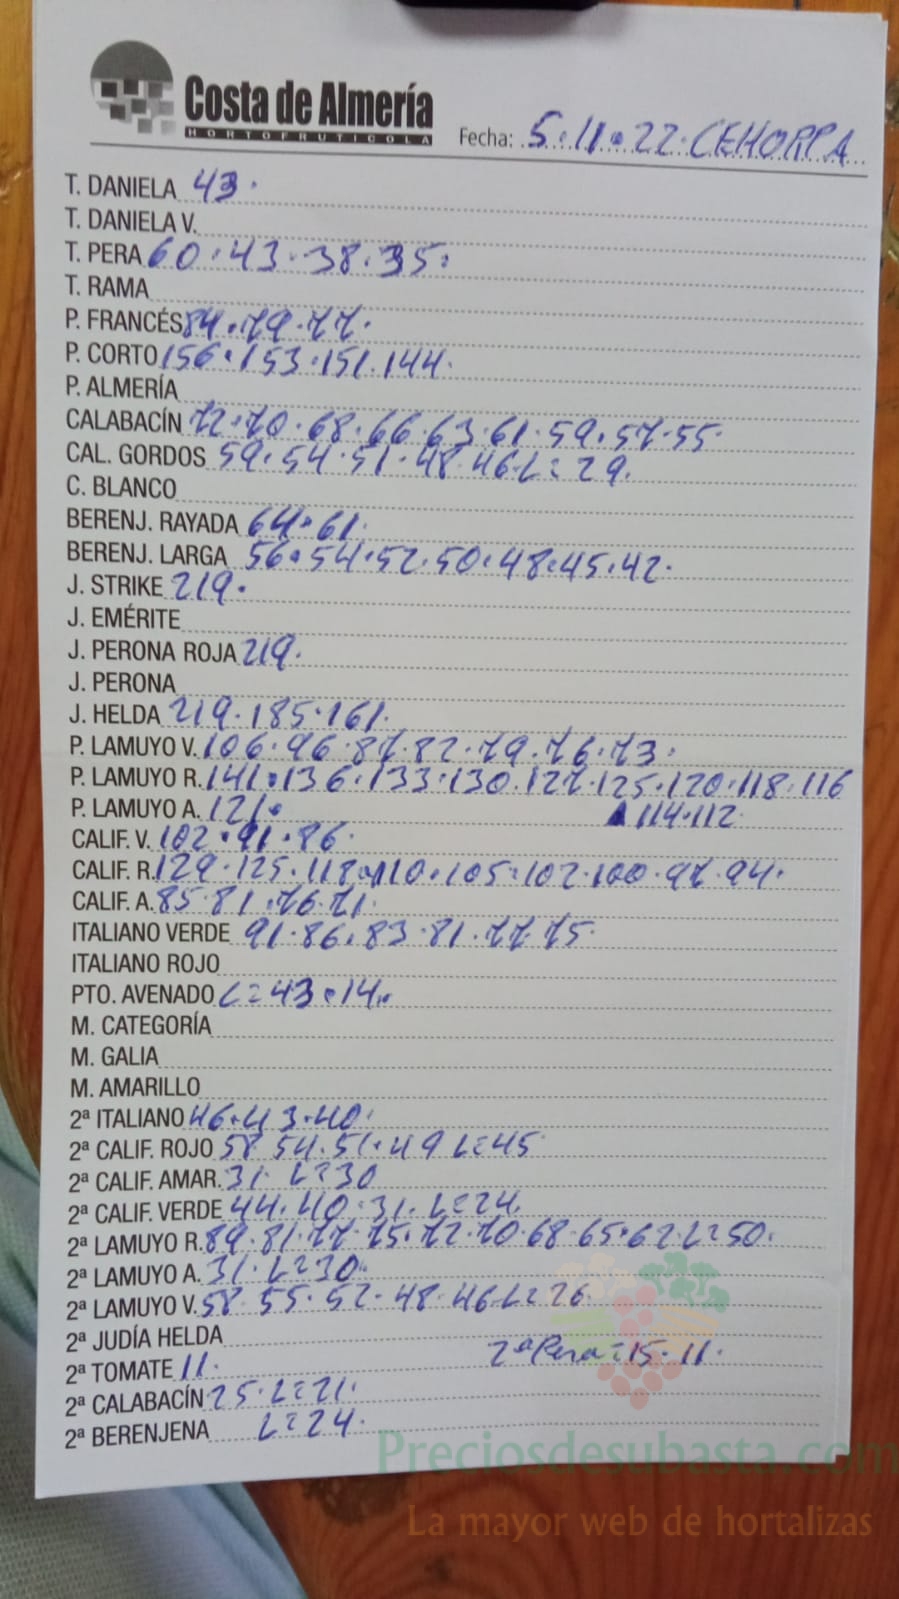 Costa de Almería
HORTOFRUTICOLA
Fecha: 5·11·22·CEHORPA
T. DANIELA 43·
T. DANIELA V.
T. PERA 60·43·38·35·
T. RAMA
P. FRANCÉS 84·79·77·
P. CORTO 156·153·151·144·
P. ALMERÍA
CALABACÍN 72·70·68·66·63·61·59·57·55·
CAL. GORDOS 59·54·51·48·46·L=29·
C. BLANCO
BERENJ. RAYADA 64·61·
BERENJ. LARGA 56·54·52·50·48·45·42·
J. STRIKE 219·
J. EMÉRITE
J. PERONA ROJA 219·
J. PERONA
J. HELDA 219·185·161·
P. LAMUYO V. 106·96·87·82·79·76·73·
P. LAMUYO R. 141·136·133·130·127·125·120·118·116
P. LAMUYO A. 121· ▲114·112
CALIF. V. 102·91·86·
CALIF. R. 129·125·118·110·105·102·100·97·94·
CALIF. A. 85·81·76·71·
ITALIANO VERDE 91·86·83·81·77·75·
ITALIANO ROJO
PTO. AVENADO L=43·14·
M. CATEGORÍA
M. GALIA
M. AMARILLO
2ª ITALIANO 46·43·40·
2ª CALIF. ROJO 58·54·51·49 L=45
2ª CALIF. AMAR. 31· L=30
2ª CALIF. VERDE 44·40·31·L=24·
2ª LAMUYO R. 89·81·77·75·72·70·68·65·62·L=50·
2ª LAMUYO A. 31·L=30·
2ª LAMUYO V. 58·55·52·48·46·L=26·
2ª JUDÍA HELDA
2ª TOMATE 11· 2ª Pera=15·11·
2ª CALABACÍN 25·L=21·
2ª BERENJENA L=24·
Preciosdesubasta.com
La mayor web de hortalizas